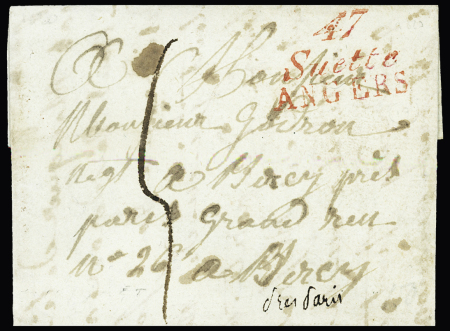 47
Suette
ANGERS
A Monsieur
Monsieur Godron
negt a Bercy près
paris Grand rue
n° 26 a Bercy
près Paris